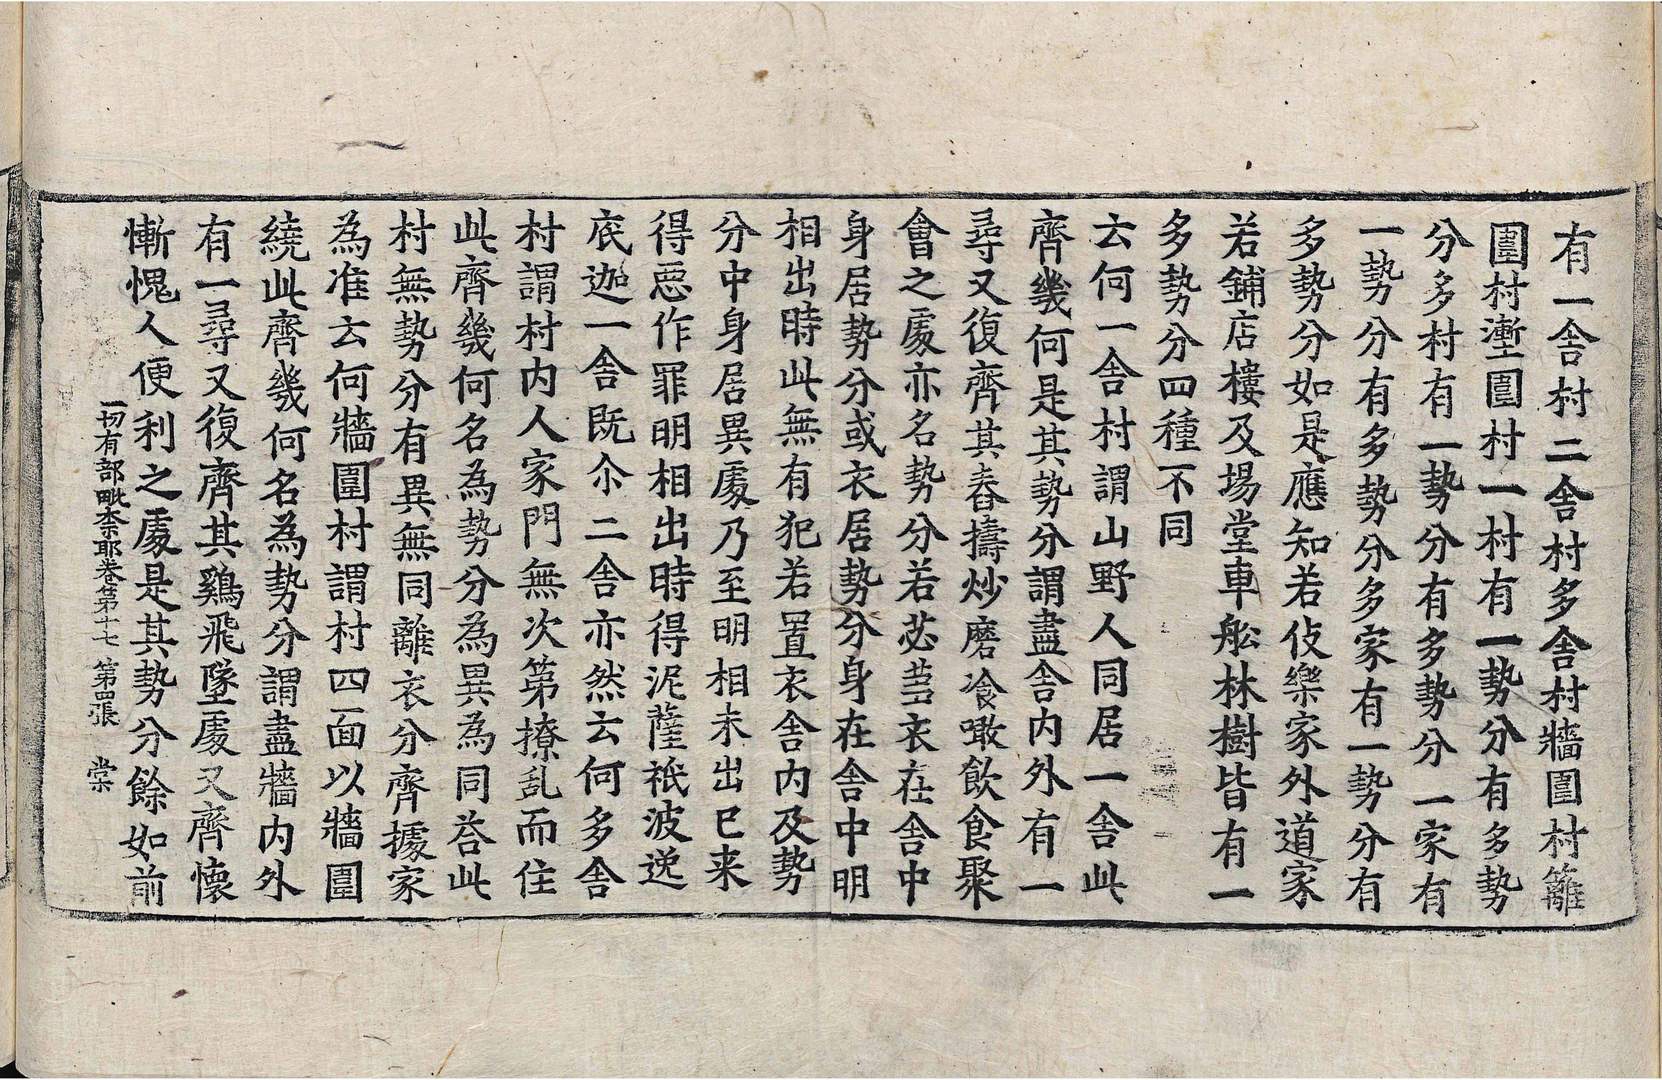 有一舍村二舍村多舍村牆圍村籬
圍村壍圍村一村有一勢分有多勢
分多村有一勢分有多勢分一家有
一勢分有多勢分多家有一勢分有
多勢分如是應知若伎樂家外道家
若鋪店樓及場堂車舩林樹皆有一
多勢分四種不同
云何一舍村謂山野人同居一舍此
齊幾何是其勢分謂盡舍內外有一
尋又復齊其舂擣炒磨飡噉飲食聚
會之處亦名勢分若苾芻衣在舍中
身居勢分或衣居勢分身在舍中明
相出時此無有犯若置衣舍內及勢
分中身居異處乃至明相未出已来
得惡作罪明相出時得泥薩祇波逸
底迦一舍既尒二舍亦然云何多舍
村謂村內人家門無次第撩乱而住
此齊幾何名為勢分為異為同荅此
村無勢分有異無同離衣分齊據家
為准云何牆圍村謂村四面以牆圍
繞此齊幾何名為勢分謂盡牆內外
有一尋又復齊其鷄飛墜處又齊懷
慚愧人便利之處是其勢分餘如前
一切有部毗奈耶卷第十七 第四張 棠